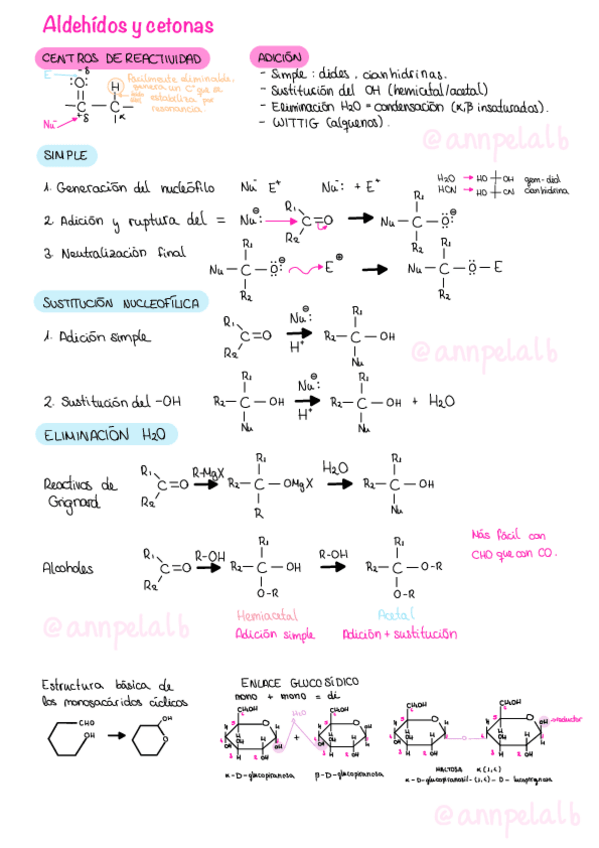 Aldehídos y cetonas
CENTROS DE REACTIVIDAD
E
-δ
:O:
H
C — C
+δ
α
Nu⁻
Fácilmente eliminable,
genera un C⁻ que se
estabiliza por
resonancia.
ADICIÓN
- Simple: dioles, cianhidrinas.
- Sustitución del OH (hemiacetal/acetal)
- Eliminación H2O = condensación (α,β insaturados).
- WITTIG (alquenos).
@annpelalb
SIMPLE
1. Generación del nucleófilo Nu⁻ E⁺ Nu⁻: + E⁺
H2O → HO OH gem-diol
HCN → HO CN cianhidrina
2. Adición y ruptura del = Nu:⊖ R1 R2 C=O → Nu — C — O:⊖ R1 R2
3. Neutralización final
Nu — C — O:⊖ R1 R2 E⊕ → Nu — C — O — E R1 R2
SUSTITUCIÓN NUCLEOFÍLICA
1. Adición simple R1 R2 C=O Nu:⊖ H⁺ → R2 — C — OH R1 Nu
@annpelalb
2. Sustitución del -OH R2 — C — OH R1 Nu Nu:⊖ H⁺ → R2 — C — OH R1 Nu + H2O
ELIMINACIÓN H2O
Reactivos de
Grignard
R1 R2 C=O R-MgX → R2 — C — OMgX R1 R H2O → R2 — C — OH R1 Nu
Alcoholes R1 R2 C=O R-OH → R2 — C — OH R1 O-R R-OH → R2 — C — O-R R1 O-R
Más fácil con
CHO que con CO.
Hemiacetal Acetal
Adición simple Adición + sustitución
@annpelalb
Estructura básica de
los monosacáridos cíclicos
CHO
OH
OH
O
ENLACE GLUCOSÍDICO
mono + mono = di
H2O
CH2OH CH2OH CH2OH CH2OH
+
reductor
α-D-glucopiranosa β-D-glucopiranosa
MALTOSA
@annpelalb